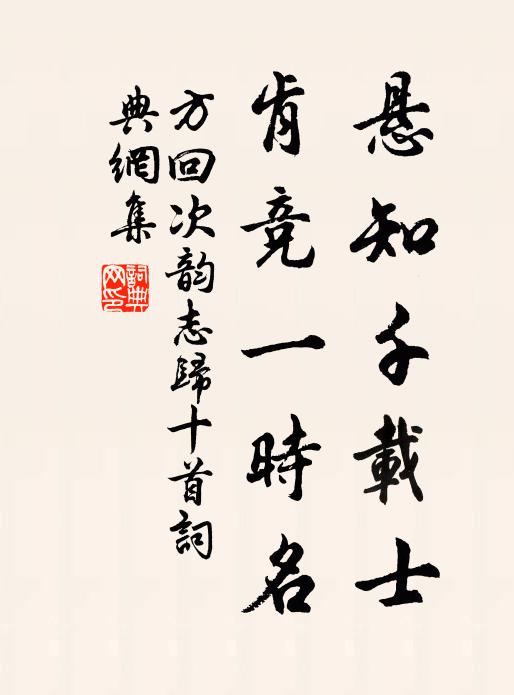 悬知千載士
肯竞一時名
方回次韵志歸十首詞
典網集
詞典網印